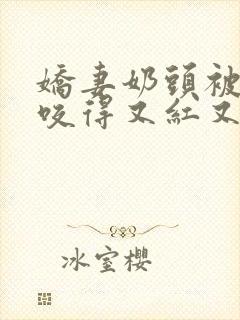 嬌妻奶頭被
咬得又紅又
冰室櫻